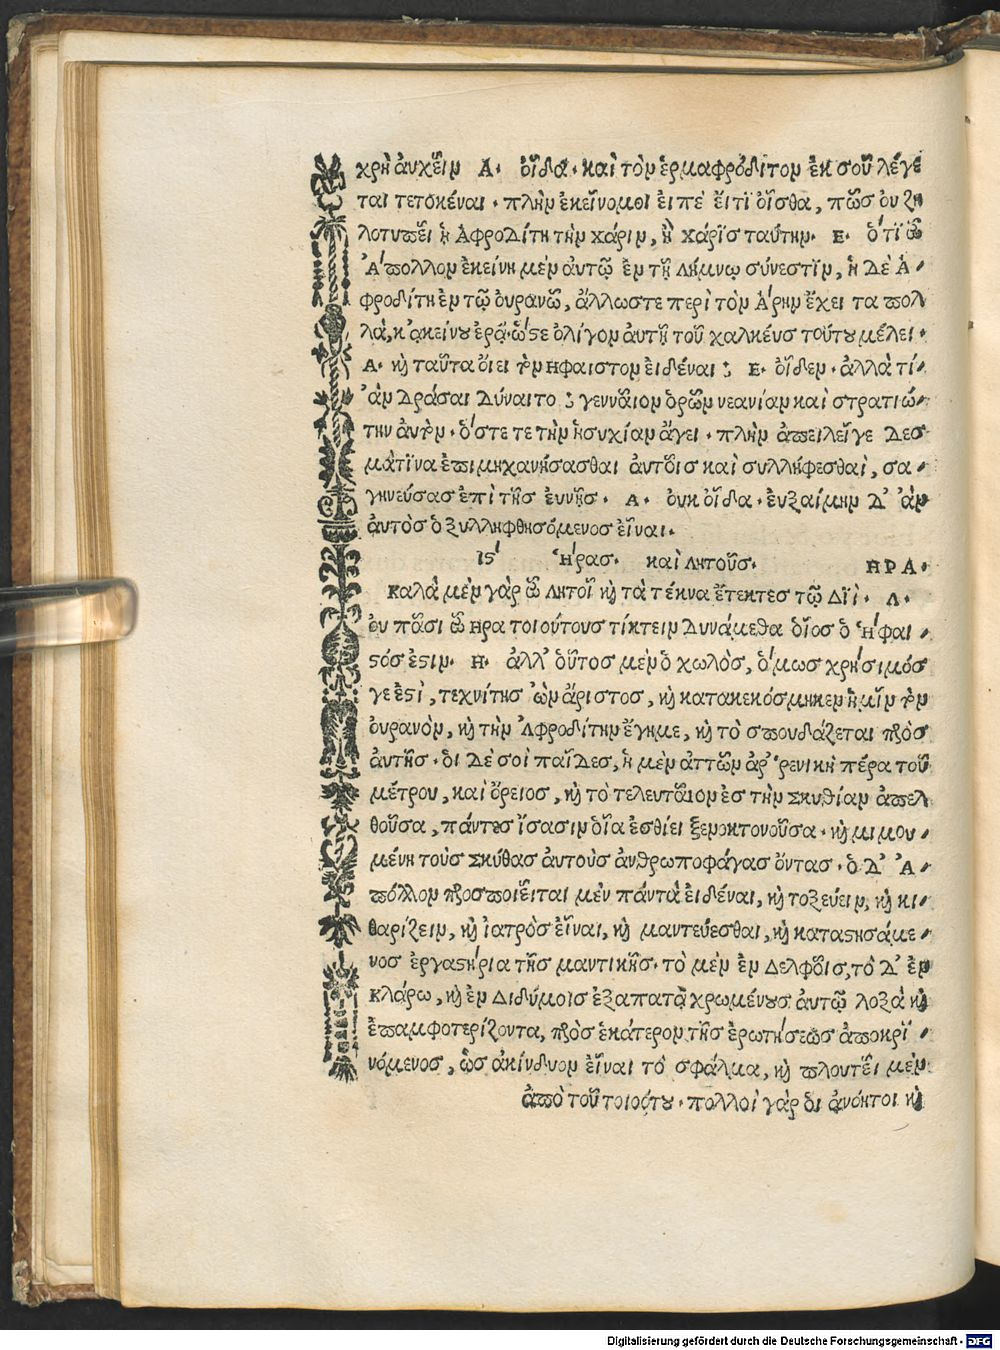 χρὴ ἀυχεῖν Α. οἶδα. καὶ τὸν ἑρμαφρόδιτον ἐκ σοῦ λέγε
ται τετοκέναι. πλὴν ἐκεῖνομοι εἰπὲ εἴτι οἶσθα, πῶς ου ζη
λοτυπεῖ ἡ Ἀφροδίτη τὴν χάριν, ἢ χάρις ταύτην. Ε. ὅτι ὦ
Ἄπολλον ἐκείνη μὲν ἀυτῷ ἐν τῇ λήμνῳ σύνεστιν, ἡ δὲ Ἀ-
φροδίτη ἐν τῷ ὀυρανῷ, ἄλλωστε περὶ τὸν Ἄρην ἔχει τα πολ
λὰ, κᾀκείνου ἐρᾷ. ὥστε ὀλίγον ἀυτῇ τοῦ χαλκέως τούτου μέλει.
Α. καὶ ταῦτα ὄιει τὸν Ηφαιστον ειδέναι; Ε. οἶδεν. ἀλλὰ τί-
ἂν δράσαι δύναιτο; γενναῖον ὁρῶν νεανίαν καὶ στρατιώ-
την ἀυτόν. ὥστε τε τὴν ἡσυχίαν ἄγει. πλὴν ἀπειλεῖγε δεσ
μάτινα ἐπιμηχανήσασθαι ἀυτοῖς καὶ συλλήφεσθαὶ, σα
γηνεύσας ἐπὶ τῆς ἐυνῆς. Α. ουκ οἶδα. ἐυξαίμην δ' ἂν
ἀυτὸς ὁ ξυλληφθησόμενος εἶναι.
Ις' Ἥρας. καὶ Λητοῦς. ΗΡΑ.
Καλὰ μὲν γὰρ ὦ Λητοῖ καὶ τὰ τέκνα ἔτεκτες τῷ Διὶ. Λ.
ὀυ πᾶσι ὦ Ηρα τοιούτους τίκτειν δυνάμεθα οἷος ὁ Ἥφαι-
στός ἐστιν. Η. ἀλλ' οὗτος μὲν ὁ χωλὸς, ὅμως χρήσιμός
γε ἐστὶ, τεχνίτης ὢν ἄριστος, καὶ κατακεκόσμηκεν ἡμῖν τὸν
ὀυρανὸν, καὶ τὴν Ἀφροδίτην ἔγημε, καὶ τὸ σπουδάζεται πρὸς
ἀυτῆς. ὁι δὲ σοὶ παῖδες, ἡ μὲν ἀττῶν ἀῤῥενικὴ πέρα τοῦ
μέτρου, καὶ ὄρειος, καὶ τὸ τελευταῖον ἐς τὴν Σκυθίαν ἀπελ
θοῦσα, πάντες ἴσασιν οἷα ἐσθίει ξενοκτονοῦσα. καὶ μιμου-
μένη τοὺς Σκύθας ἀυτοὺς ἀνθρωποφάγας ὄντας. ὁ δ' Ἀ-
πόλλον προσποιεῖται μὲν πάντὰ ἐιδέναι, καὶ τοξεύειν, καὶ κι-
θαρίζειν, καὶ ἰατρὸς εἶναι, καὶ μαντεύεσθαι, καὶ καταστησάμε-
νος ἐργαστήρια τῆς μαντικῆς. τὸ μὲν ἐν Δελφοῖς, τὸ δ' ἐν
Κλάρω, καὶ ἐν Διδύμοις ἐξαπατᾷ χρωμένους ἀυτῷ λοξὰ καὶ
ἐπαμφοτερίζοντα, πρὸς ἑκάτερον τῆς ἐρωτήσεως ἀποκρι-
νόμενος, ὡς ἀκίνδυνον εἶναι τὸ σφάλμα, καὶ πλουτεῖ μὲν
ἀπὸ τοῦ τοιούτου. πολλοὶ γὰρ ὁι ἀνόητοι καὶ
Digitalisierung gefördert durch die Deutsche Forschungsgemeinschaft - DFG